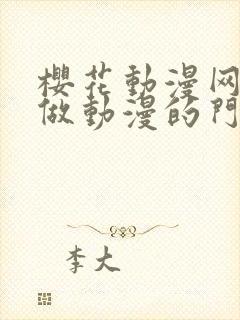 櫻花動漫网
做動漫的門
李大